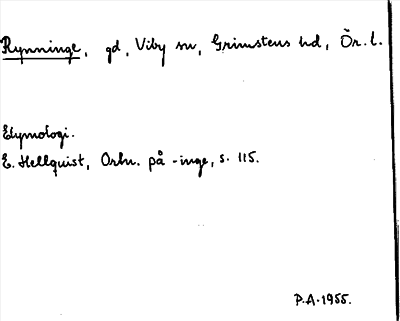 Rynninge, gd, Viby sn, Grimstens hd, Ör. l.
Etymologi.
E. Hellquist, Ortn. på -inge, s. 115.
P.A. 1955.